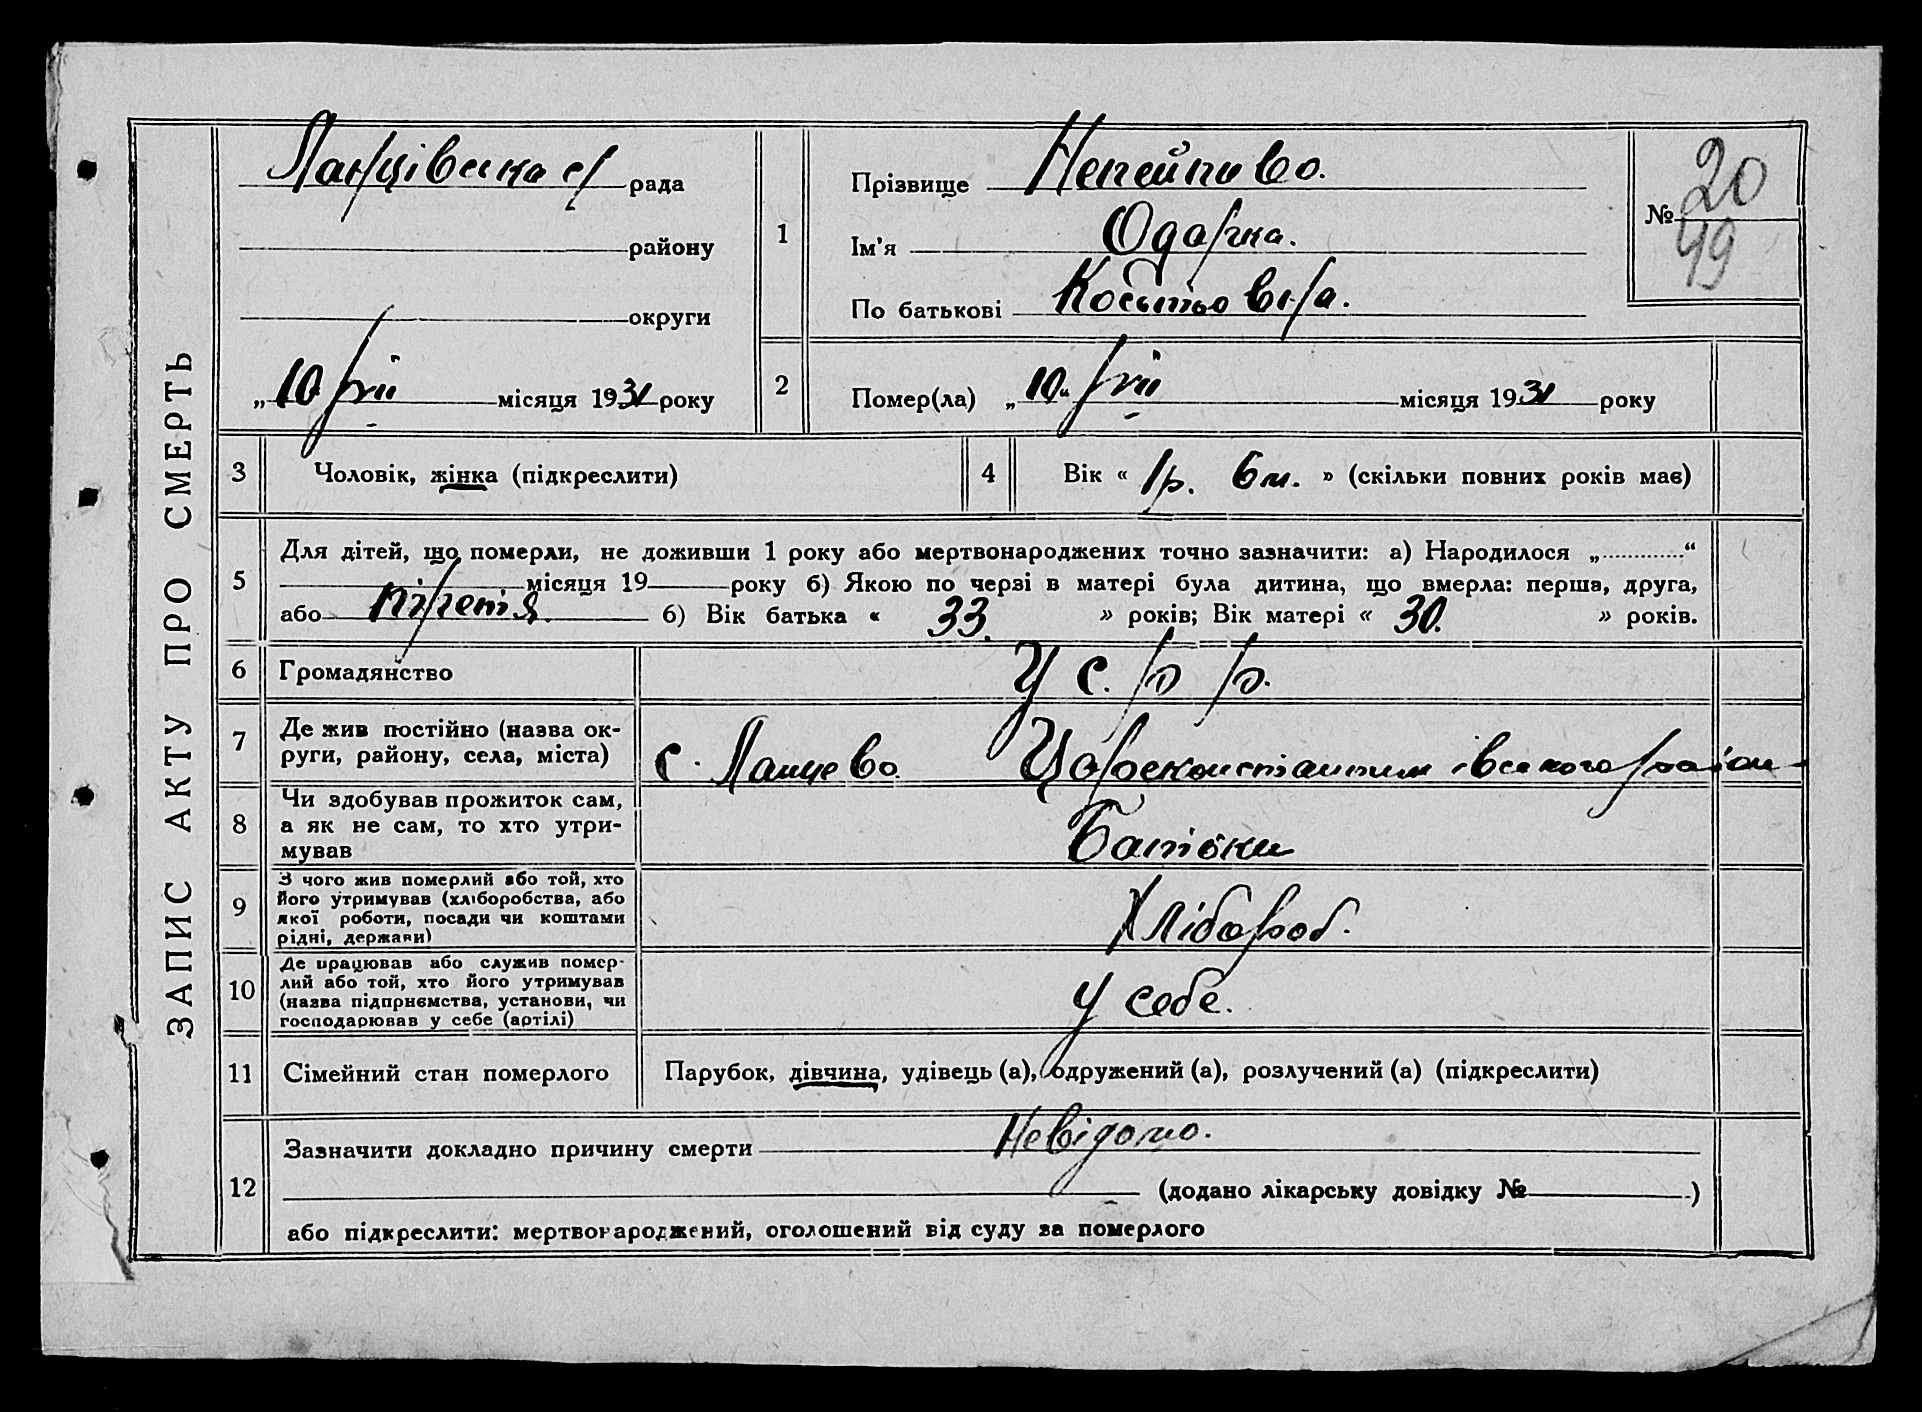 ЗАПИС АКТУ ПРО СМЕРТЬ
Ланцівська с/ рада
району
округи
„10 VII місяця 1931 року
1
Прізвище Непейпиво.
Ім'я Одарка.
По батькові
№ 20
49
2
Помер(ла) „10“ VII місяця 1931 року
3
Чоловік, жінка (підкреслити)
4
Вік « 1р. 6м. » (скільки повних років має)
5
Для дітей, що померли, не доживши 1 року або мертвонароджених точно зазначити: а) Народилося „............“
місяця 19 року б) Якою по черзі в матері була дитина, що вмерла: перша, друга,
або б) Вік батька « 33. » років; Вік матері « 30. » років.
6
Громадянство
У С. Р Р.
7
Де жив постійно (назва ок-
руги, району, села, міста)
с. Ланцево Цареконстантинівського район
8
Чи здобував прожиток сам,
а як не сам, то хто утри-
мував
Батьки
9
З чого жив померлий або той, хто
його утримував (хліборобства, або
якої роботи, посади чи коштами
рідні, держави)
Хлібороб.
10
Де працював або служив помер-
лий або той, хто його утримував
(назва підприємства, установи, чи
господарював у себе (артілі)
У себе.
11
Сімейний стан померлого
Парубок, дівчина, удівець (а), одружений (а), розлучений (а) (підкреслити)
12
Зазначити докладно причину смерти Невідомо.
(додано лікарську довідку № )
або підкреслити: мертвонароджений, оголошений від суду за померлого